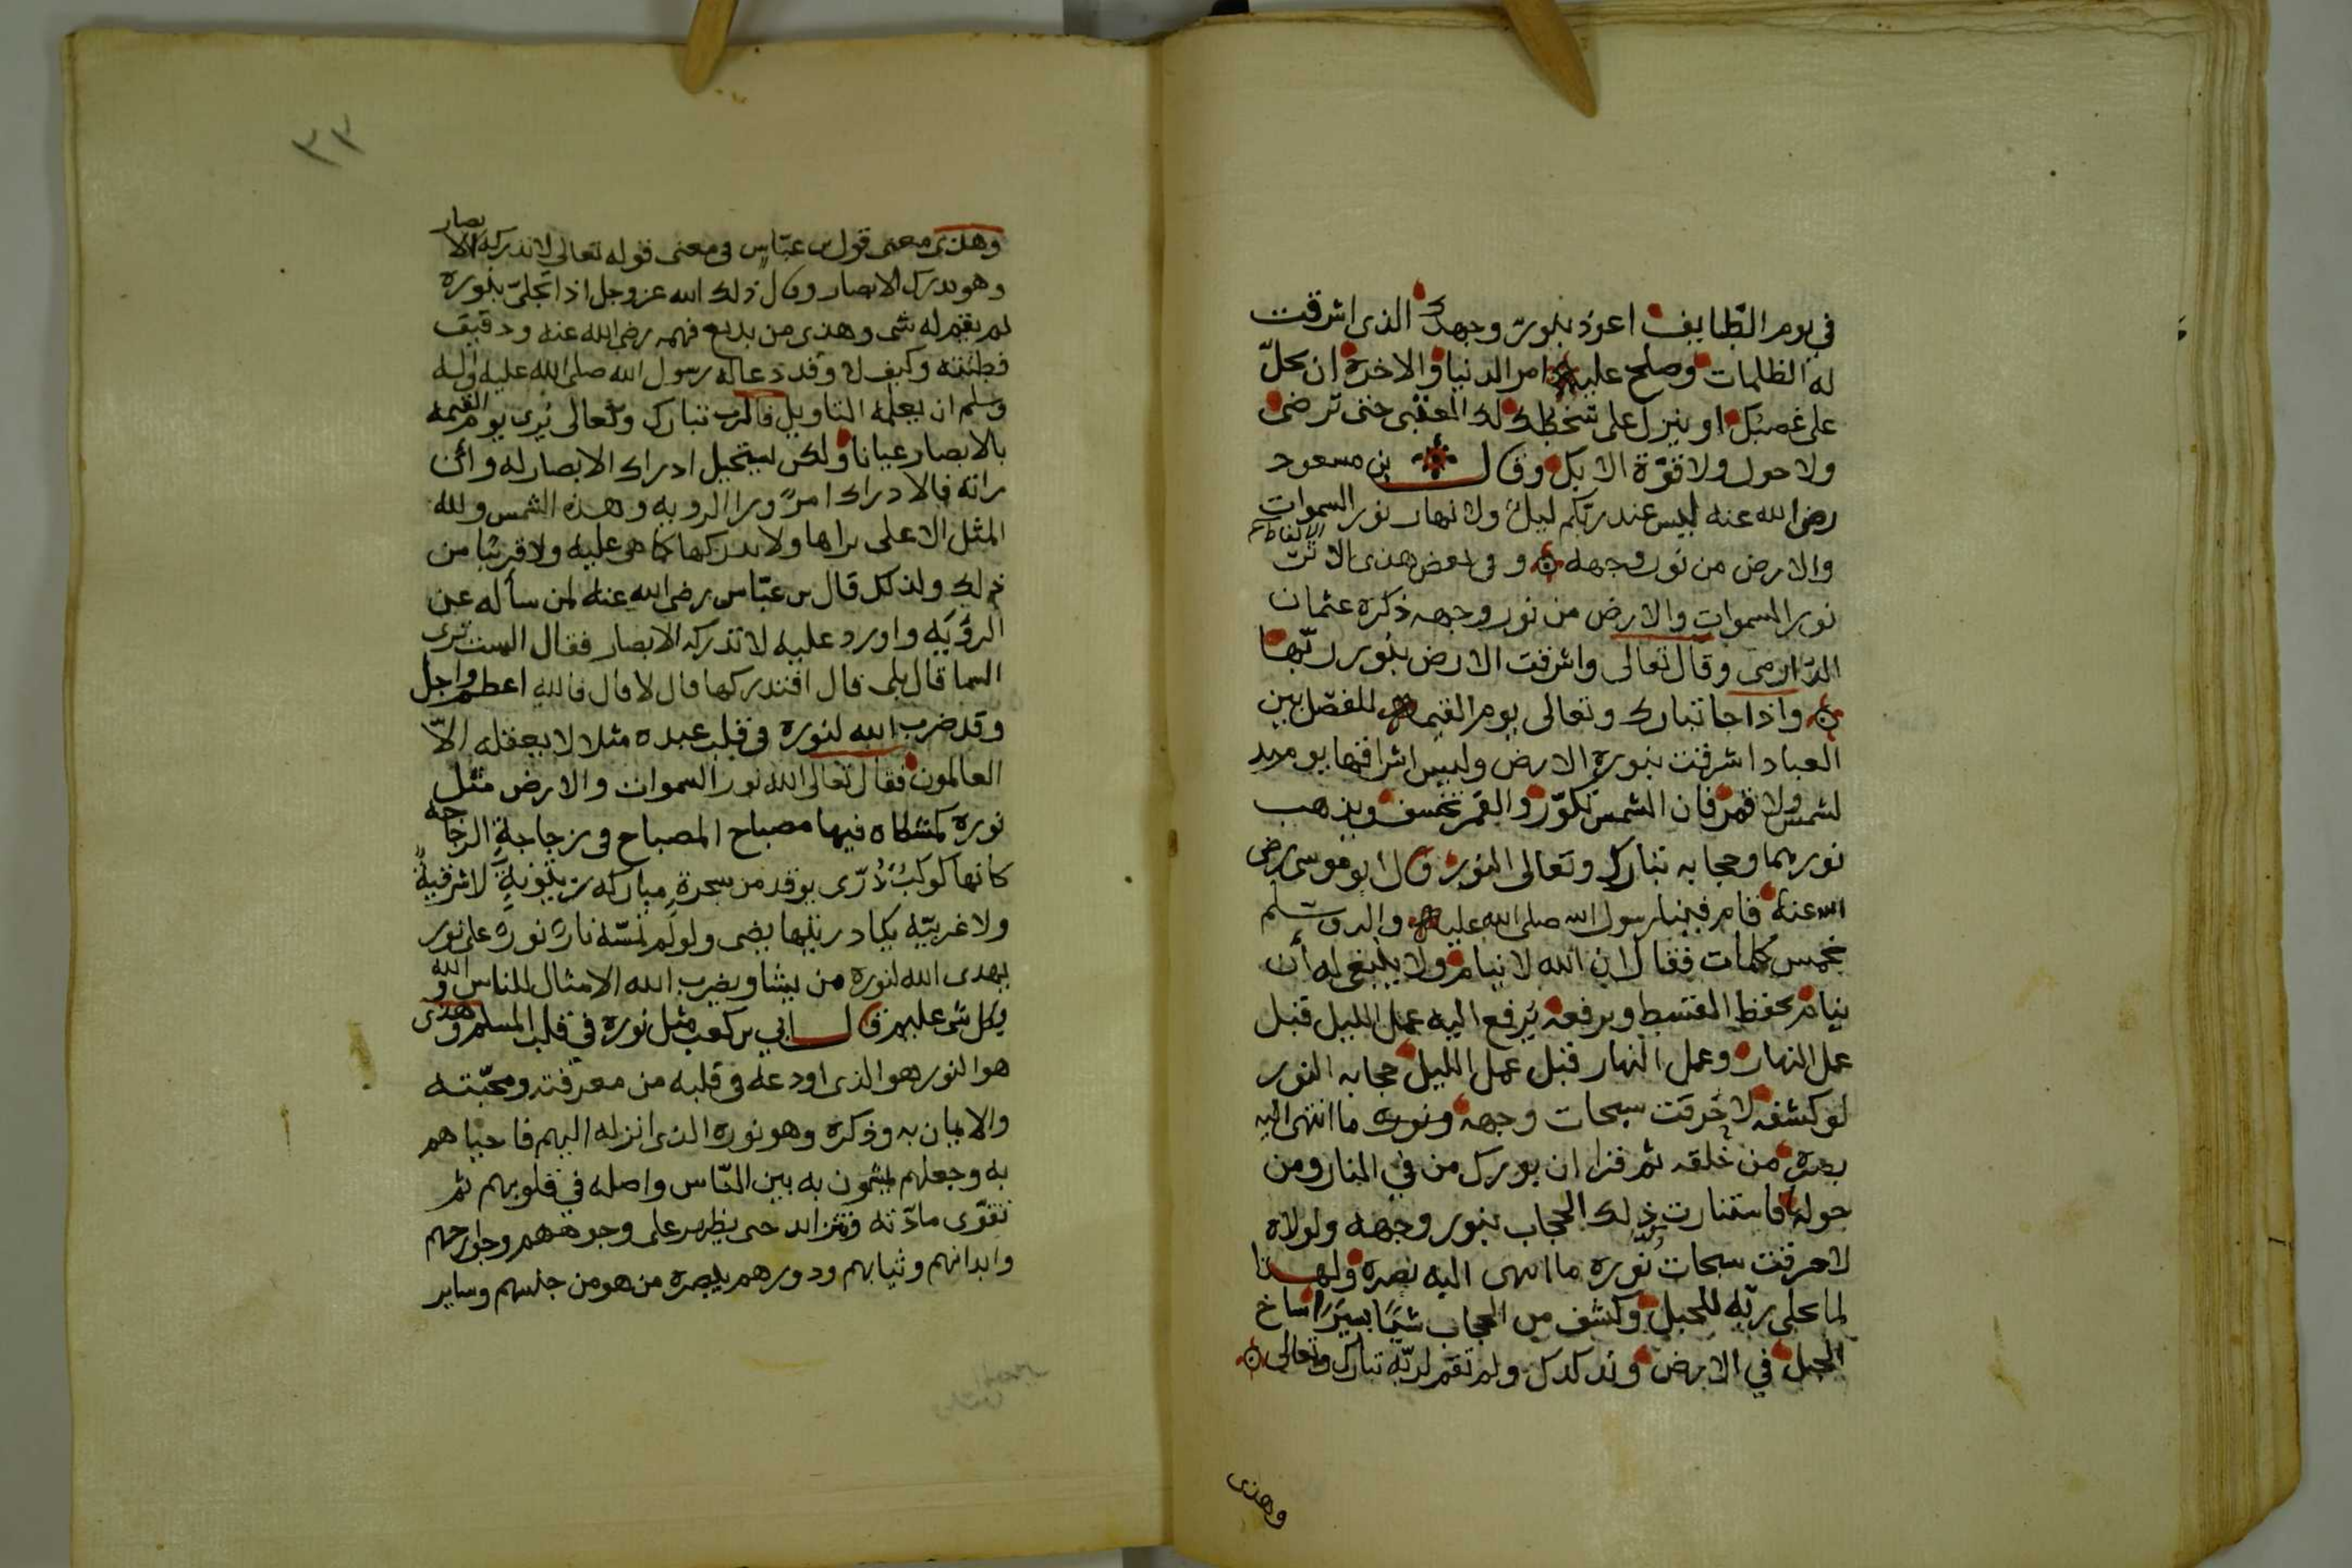 في يوم الطايف اعوذ بنور وجهك الذى اشرقت
له الظلمات وصلح عليه امر الدنيا والاخرة ان يحلّ
على غضبك او ينزل على سخطك لك العتبى حتى ترضى
ولا حول ولا قوّة الا بك وقال بن مسعود
رضى الله عنه ليس عند ربّكم ليل ولا نهار نور السموات
والارض من نور وجهه وفى بعض هذى الالفاظ
نور السموات والارض من نور وجهه ذكره عثمان
الدّارمى وقال تعالى واشرقت الارض بنور ربّها
واذا جا تبارك وتعالى يوم القيمه للفصل بين
العباد اشرقت بنوره الارض وليس اشراقها يوميد
لشمس ولا قمر فان الشمس تكوّر والقمر يخسف ويذهب
نورهما وحجابه تبارك وتعالى النور قال ابو موسى رضى
الله عنه قام فينا رسول الله صلى الله عليه واله وسلم
بخمس كلمات فقال ان الله لا ينام ولا ينبغى له أن
ينام يخفظ القسط ويرفعه يُرفع اليه عمل الليل قبل
عمل النهار وعمل النهار قبل عمل الليل حجابه النور
لو كشفه لاحرقت سبحات وجهه ونوره ما انتهى اليه
بصره من خلقه ثم قرا ان بورك من في النار ومن
حولها فاستنارت ذلك الحجاب بنور وجهه ولولاه
لاحرقت سبحات نوره ما انتهى اليه بصره ولهذا
لما تجلى ربّه للجبل وكشف من الحجاب شيًا يسيرًا ساخ
الجبل في الارض وتدكدك ولم تقم لربّه تبارك وتعالى
وهذى
٣٣
وهذى معنى قول بن عبّاس فى معنى قوله تعالى لا تدركه الابصار
وهو يدرك الابصار وقال ذلك الله عز وجل اذا تجلىّ بنوره
لم يقم له شى وهذى من بديع فهمه رضى الله عنه ودقيق
فطنته وكيف لا وقد دعا له رسول الله صلى الله عليه واله
وسلم ان يعلمه التاويل فالرب تبارك وتعالى يُرى يوم القيمه
بالابصار عيانا ولكن يستحيل ادراك الابصار له وأن
راته فالادراك امرً ورا الرويه وهذه الشمس ولله
المثل الاعلى نراها ولا ندركها كما هى عليه ولا قريبًا من
ذلك ولذلك قال بن عبّاس رضى الله عنه لمن سأله عن
الرؤيَه واورد عليه لا تدركه الابصار فقال الست ترى
السما قال بلى قال افتدركها قال لا قال فالله اعظم واجل
وقد ضرب الله لنوره فى قلب عبده مثلا لا يعقله الّا
العالمون فقال تعالى الله نور السموات والارض مثل
نوره كمشكاه فيها مصباح المصباح فى زجاجةٍ الزجاجه
كانها كوكبُ دُرّى يوقد من شجرةٍ مباركه زيتونةٍ لا شرقيةٍ
ولا غربيّه يكاد زيتها يضى ولو لم تمسّه نارً نورً على نور
يهدى الله لنوره من يشا ويضرب الله الامثال للناس والله
بكل شى عليم قال ابي بن كعب مثل نوره في قلب المسلم وهذى
هو النور هو الذى اودعه فى قلبه من معرفته ومحبّته
والايمان به وذكره وهو نوره الذى انزله اليهم فاحياهم
به وجعلهم يمشون به بين النّاس واصله في قلوبهم ثم
تقوّى مادّته فتتزايد حتى يظهر على وجوههم وجوارحهم
وابدانهم وثيابهم ودورهم يبصره من هو من جنسهم وساير